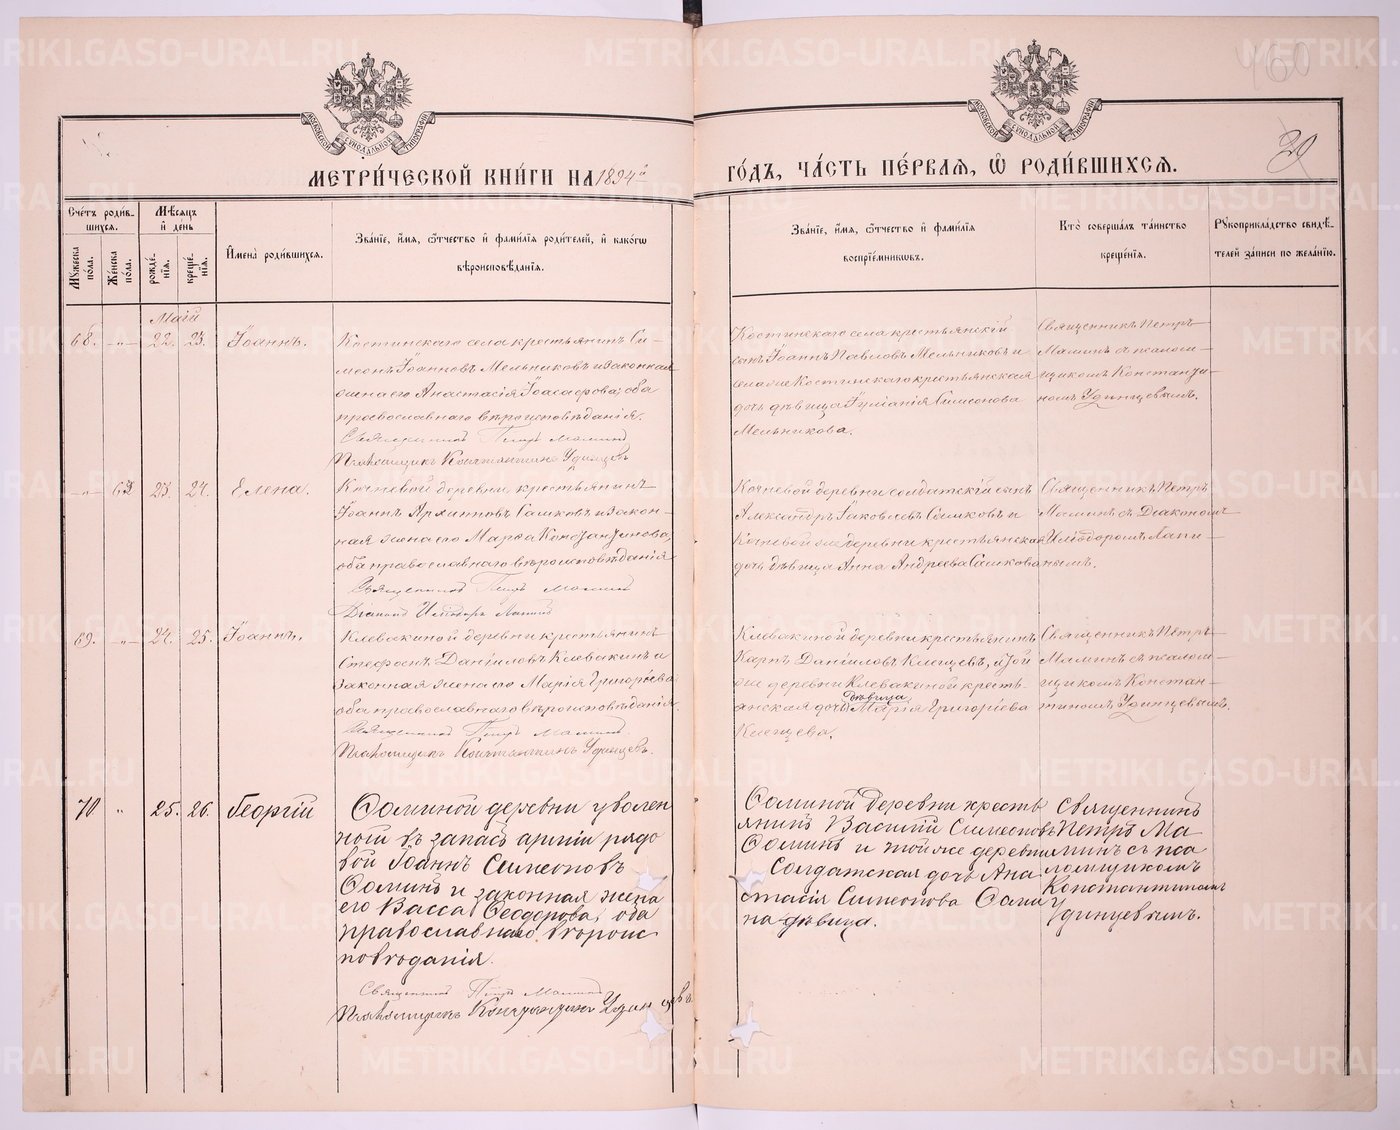 160
29
МЕТРИ́ЧЕСКОЙ КНИ́ГИ НА 1894й
ГО́ДЪ, ЧА́СТЬ ПЕ́РВАЯ, Ѡ РОДИ́ВШИХСЯ.
Сче́тъ роди́в-
шихся.
Мꙋ́жеска по́ла.
Же́нска по́ла.
Мѣ́сяцъ
и҆ де́нь
рожде́нія.
креще́нія.
И҆мена̀ роди́вшихся.
Зва́ніе, и҆́мя, ѻ҆́тчество и҆ фами́лія роди́телей, и҆ како́гѡ
вѣроисповѣ́данія.
Зва́ніе, и҆́мя, ѻ҆́тчество и҆ фами́лія
воспріе́мниковъ.
Кто̀ соверша́лъ та́инство
креще́нія.
Рꙋкоприкла́дство свидѣ́-
телей за́писи по жела́нію.
Май
68. -„- 22. 23. Іоаннъ.
Костинскаго села крестьянинъ Си-
меонъ Іоанновъ Мельниковъ и законная
жена его Анастасія Іоасафова; оба
православнаго вѣроисповѣданія.
Священникъ Петръ Маминъ
Псаломщикъ Константинъ Удинцевъ
Костинскаго села крестьянскій
сынъ Іоаннъ Павловъ Мельниковъ и
села Костинскаго крестьянская
дочь дѣвица Симеонова
Мельникова.
Священникъ Петръ
Маминъ съ псалом-
щикомъ Константи-
номъ Удинцевымъ.
-„- 62 23. 24. Елена.
Кочневой деревни крестьянинъ
Іоаннъ Архиповъ Сашковъ и закон-
ная жена его Марфа Константинова,
оба православнаго вѣроисповѣданія
Священникъ Петръ Маминъ
Діаконъ Иліодоръ Лапинъ
Кочневой деревни солдатскій сынъ
Александръ Іаковлевъ Сашковъ и
Кочневой же деревни крестьянская
дочь дѣвица Анна Андреева Сашкова
Священникъ Петръ
Маминъ съ Діакономъ
Иліодоромъ Лапи-
нымъ.
69. „- 24. 25. Іоаннъ.
Клевакиной деревни крестьянинъ
Стефанъ Даніиловъ Клевакинъ и
законная жена его Марія Григорьева
оба православнаго вѣроисповѣданія.
Священникъ Петръ Маминъ.
Псаломщикъ Константинъ Удинцевъ.
Клевакиной деревни крестьянинъ
Карпъ Даніиловъ Клещевъ, и той
же деревни Клевакиной кресть-
янская дочь дѣвица Марія Григоріева
Клещева.
Священникъ Петръ
Маминъ съ псалом-
щикомъ Констан-
тиномъ Удинцевымъ.
70 „ 25. 26. Георгій
Фоминой деревни уволен
ной въ запасъ арміи рядо
вой Іоаннъ Симеоновъ
Фоминъ и законная жена
его Васса Ѳеодорова, оба
православнаго вѣроис
повѣданія.
Священникъ Петръ Маминъ
Псаломщикъ Константинъ Удинцевъ
Фоминой деревни кресть
янинъ Василій Симеоновъ
Фоминъ и той же деревни
Солдатская дочь Ана
стасія Симеонова Фоми
на дѣвица.
Священникъ
Петръ Ма
минъ съ пса
ломщикомъ
Константиномъ
Удинцевымъ.
METRIKI.GASO-URAL.RU